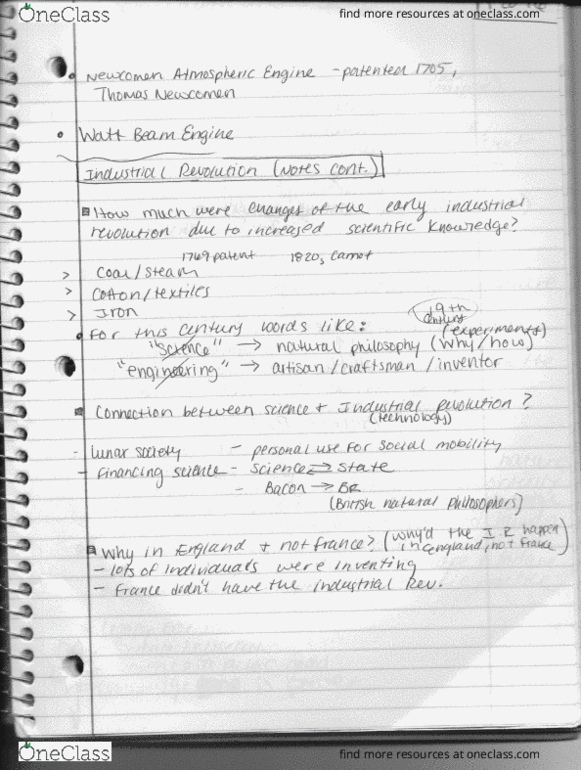 OneClass
find more resources at oneclass.com
• Newcomen Atmospheric Engine - patented 1705,
Thomas Newcomen
• Watt Beam Engine
Industrial Revolution (Notes cont.)
How much were changes of the early industrial
revolution due to increased scientific knowledge?
1769 patent 1820, Carnot
> Coal/steam
> Cotton/textiles
> Iron
19th century
• For this century words like: (experiments)
"science" → natural philosophy (why/how)
"engineering" → artisan/craftsman/inventor
Connection between science + Industrial revolution?
(technology)
- lunar society - personal use for social mobility
- financing science - Science ⇄ State
- Bacon → BR
(British natural philosophers)
Why in England + not france? (why'd the I R happen
in england, not france)
- lots of individuals were inventing
- france didn't have the industrial Rev.
OneClass
find more resources at oneclass.com